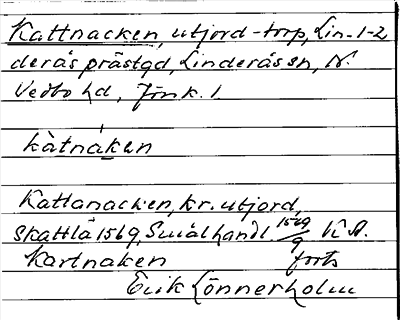 Kattnacken, utjord-torp, Lin. 1-2
derås prästgd, Linderås sn, N.
Vedbo hd, Jönk. l.
kàtnáken
Kattanacken, kr. utjord,
skattlä 1569, Smål handl 1569/9 KA.
Kartnaken forts
Erik Lönnerholm